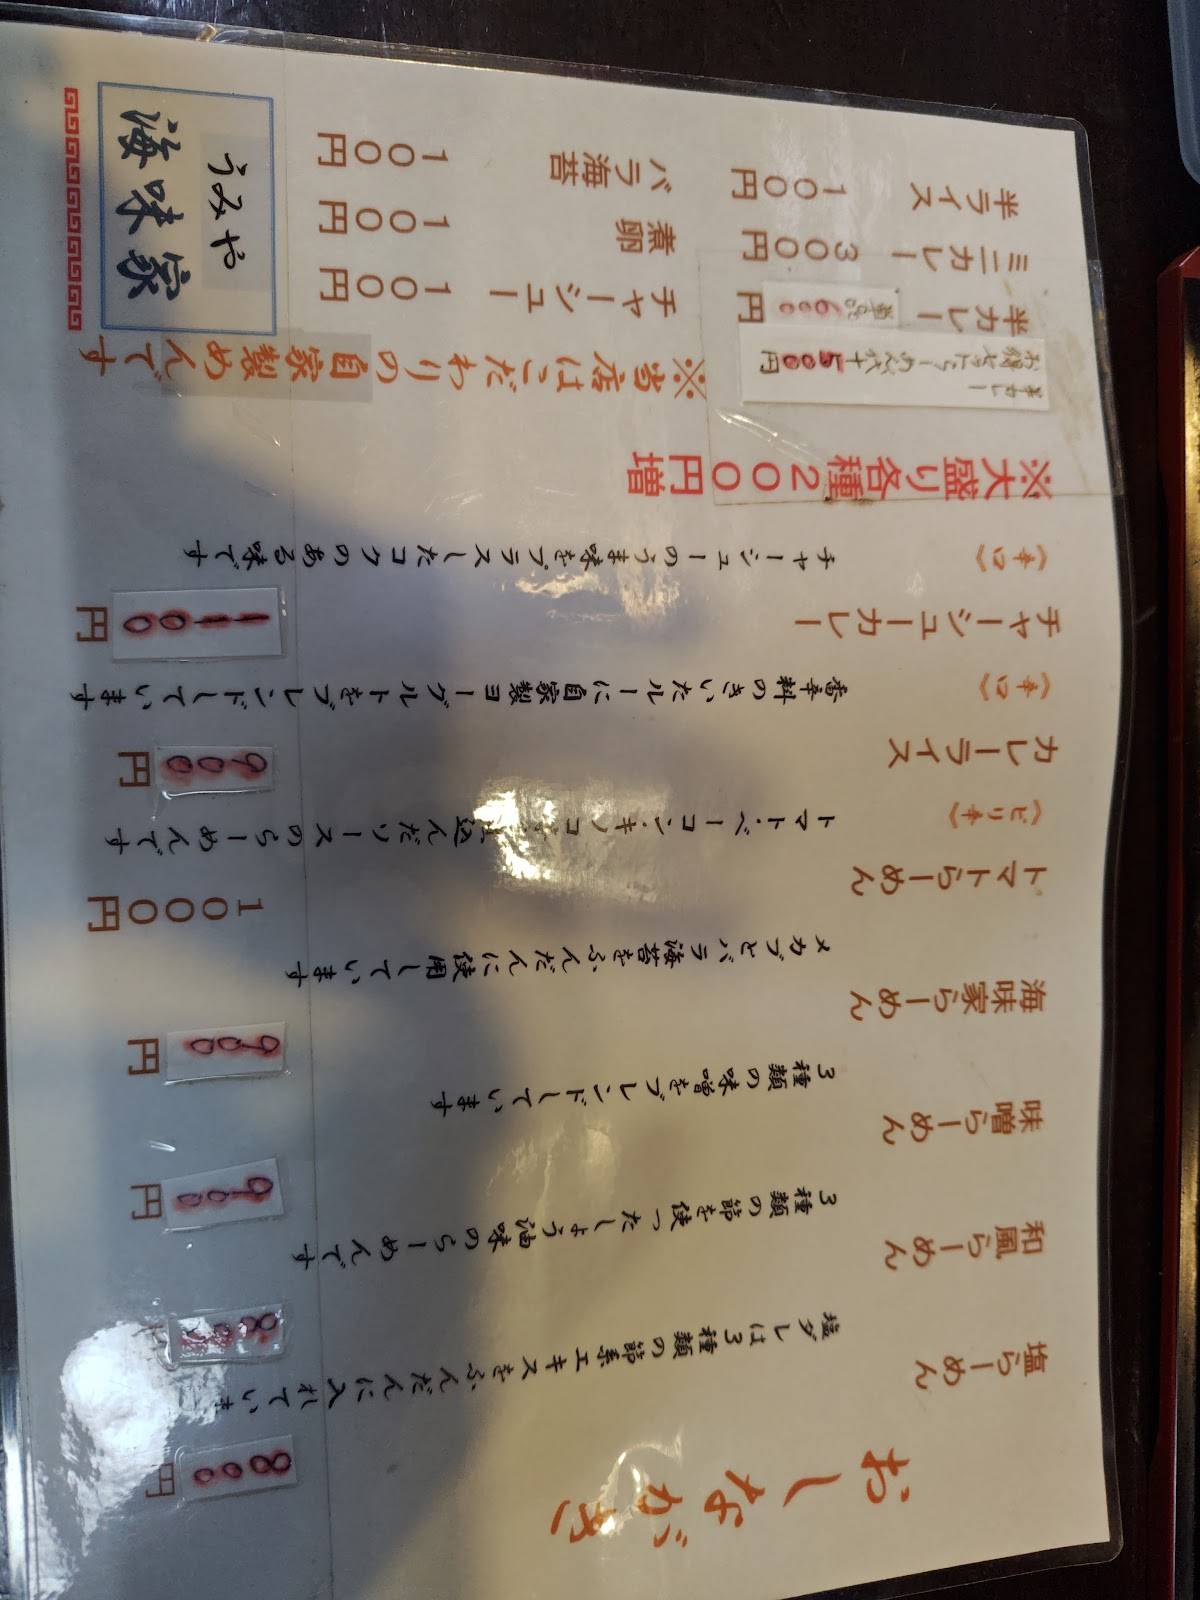 おしながき
塩らーめん
塩ダレは3種類の節系エキスをふんだんに入れていま
800円
和風らーめん
3種類の節を使ったしょう油味のらーめんです
800
味噌らーめん
3種類の味噌をブレンドしています
900円
海味家らーめん
メカブとバラ海苔をふんだんに使用しています
900円
トマトらーめん
《ピリ辛》
トマト・ベーコン・キノコ 込んだソースのらーめんです
1000円
カレーライス
《辛口》
香辛料のきいたルーに自家製ヨーグルトをブレンドしています
900円
チャーシューカレー
《辛口》
チャーシューのうま味をプラスしたコクのある味です
1100円
※大盛り各種200円増
半カレー
お得なセットらーめん代+500円
半カレー 単品600円
ミニカレー 300円
半ライス 100円
※当店はこだわりの自家製めんです
チャーシュー 100円
煮卵 100円
バラ海苔 100円
うみや
海味家